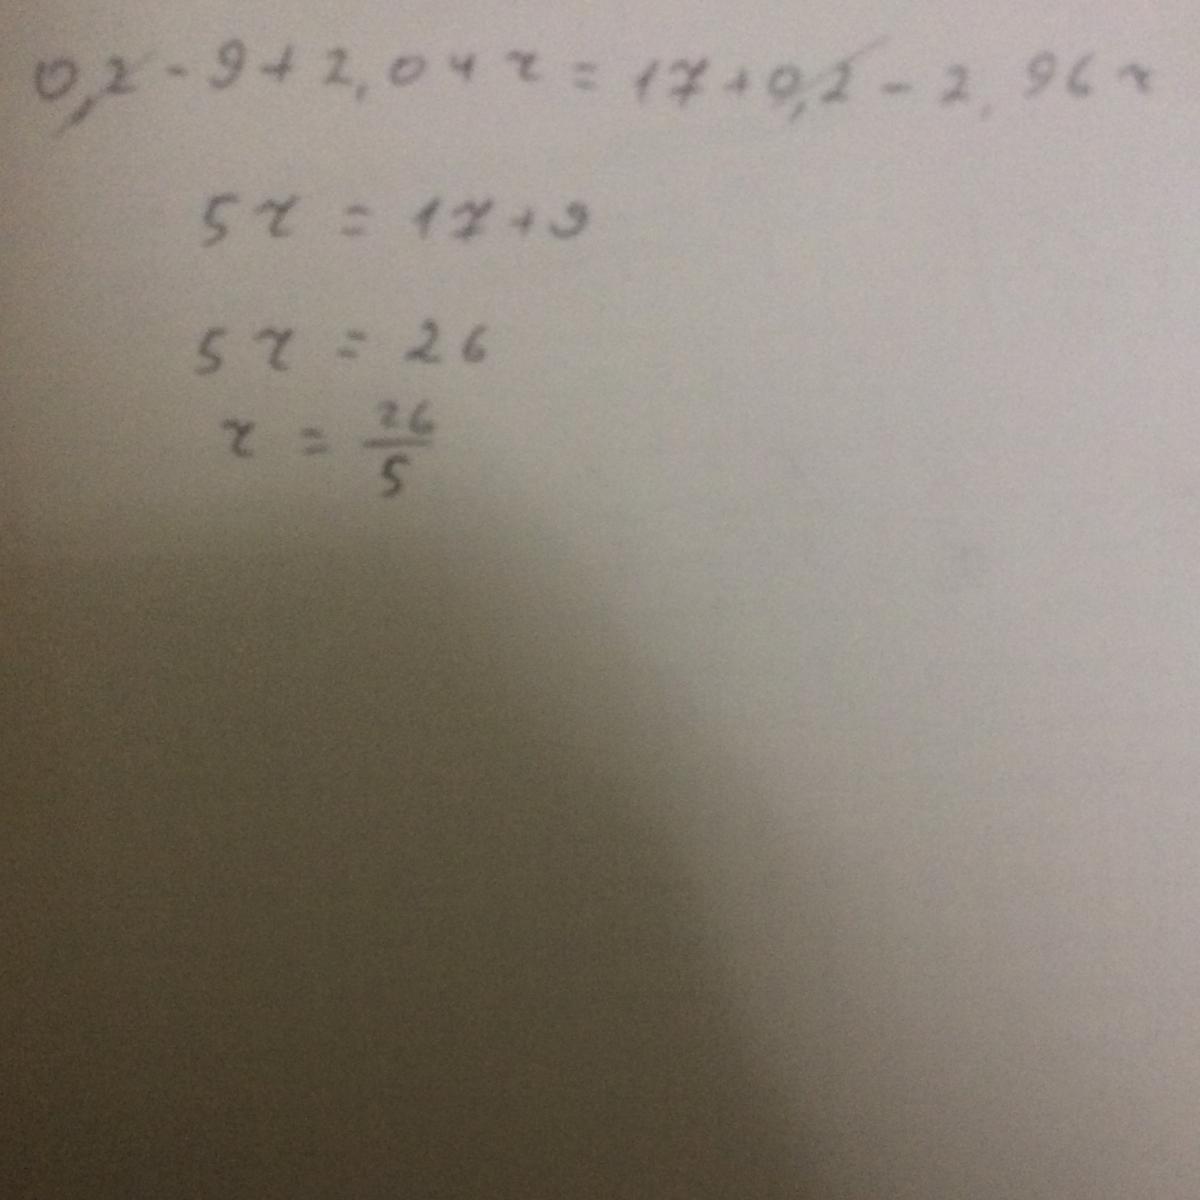 0,2 - 9 + 2,04x = 17 + 0,2 - 2,96x
5x = 17 + 9
5x = 26
x = 26/5